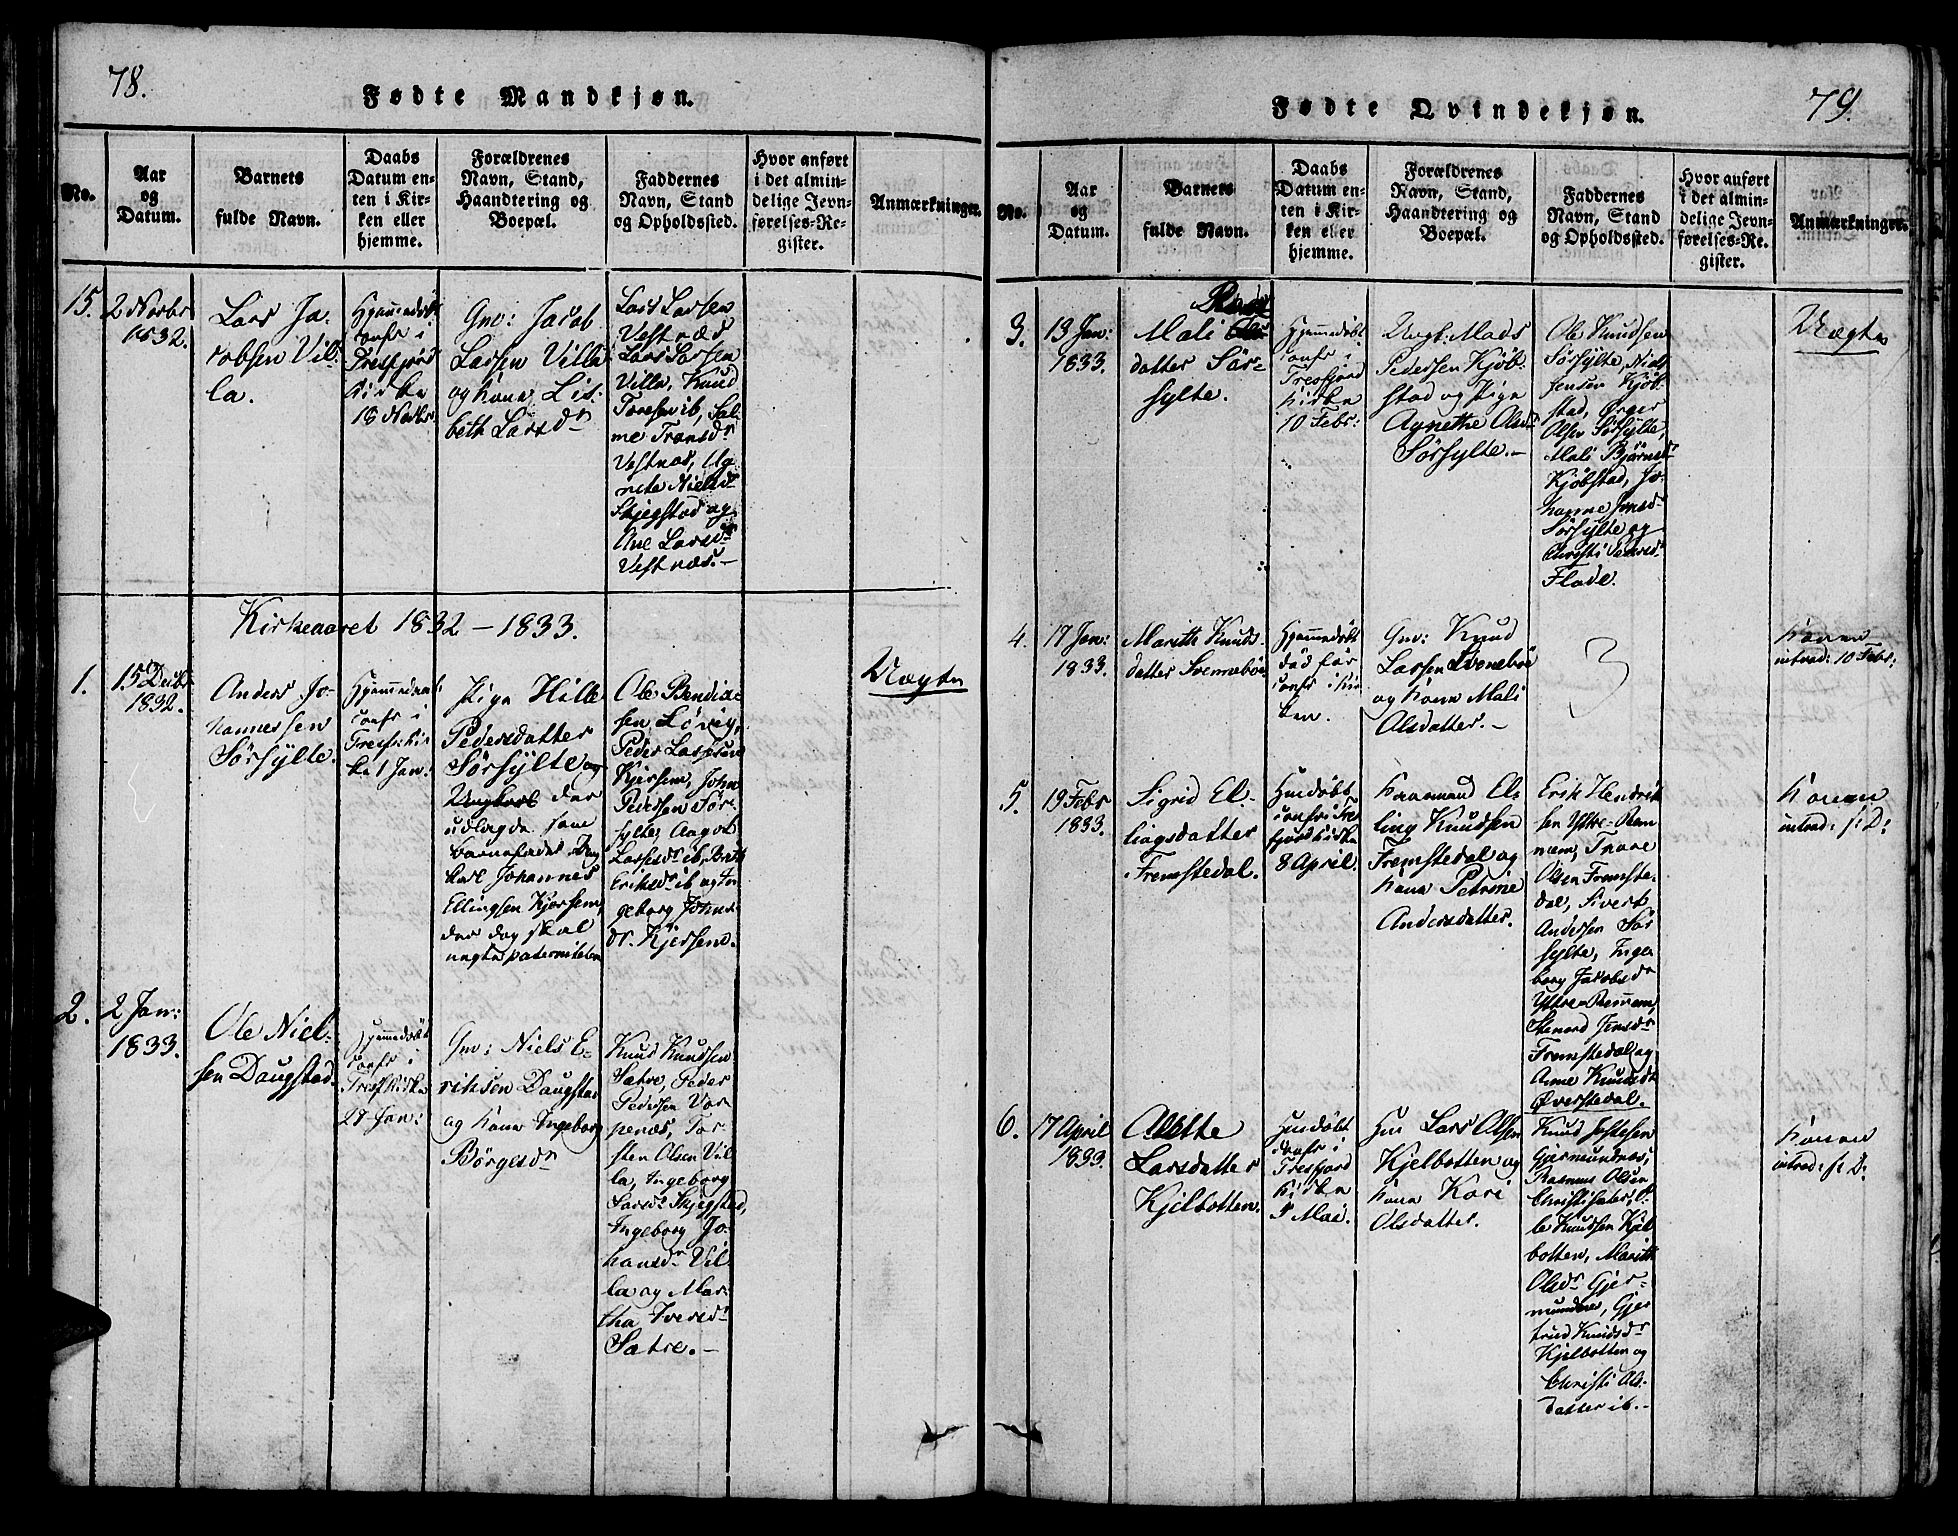 78.
Fødte Mandkjøn.
No.
Aar
og
Datum.
Barnets
fulde Navn.
Daabs
Datum en-
ten i Kir-
ken eller
hjemme.
Forældrenes
Navn, Stand,
Haandtering og
Boepæl.
Faddernes
Navn, Stand
og Opholdssted.
Hvor anført
i det almin-
delige Jevn-
førelses-Re-
gister.
Anmærkninger.
15.
2 Novbr
1832.
Lars Ja-
cobsen Vil-
la.
Hjemmedøbt
confr i
Tresfjord
Kirke
18 Novbr.
Gm: Jacob
Larsen Villa
og Kone Lis-
beth Larsdr
Lars Larsen
Vestnæs
Lars Larsen
Villa, Knud
Toresen ib,
Vestnæs,
Nielsdr
Skjegstad og
Ane Larsdr
Vestnæs.—
Kirkeaaret 1832 — 1833.
1.
15 Decbr
1832.
Anders Jo-
hannessen
Sørsylte.
Hjemmedøbt
confr i
Tresf: Kir
ke 1 Jan:
Pige Hille
Pedersdatter
Sørsylte og
Ungkarl der
udlagde som
barnefader Ung
karl Johannes
Ellingsen Kjersem,
der dog skal
negte paterniteten
Ole Bendix
sen Løvig,
Peder Larsen
Kjersem, John
Pedersen Sør-
sylte, Aagot
Larsdr ib, Brith
Eriksdr ib og In
geborg Johns
dr. Kjersem.
Uægte
2.
2 Jan:
1833.
Ole Niel-
sen Daugstad.
Hjemmedøbt
confr i
Tresf: Kirke
27 Jan:
Gm: Niels E-
riksen Daugstad
og Kone Ingeborg
Børgesdr
Knud Knudsen
Sætre, Peder
Pedersen Vor-
penæs, Tor-
sten Olsen Vil-
la, Ingeborg
Larsdr Skjegstad,
Ingeborg Jo-
hansdr Vil-
la og Mar-
tha Iversdr
Sætre.—
79.
Fødte Qvindekjøn.
No.
Aar
og
Datum.
Barnets
fulde Navn.
Daabs
Datum en-
ten i Kir-
ken eller
hjemme.
Forældrenes
Navn, Stand,
Haandtering og
Boepæl.
Faddernes
Navn, Stand
og Opholdssted.
Hvor anført
i det almin-
delige Jevn-
førelses-Re-
gister.
Anmærkninger.
3.
13 Jan:
1833.
Mali
datter Sør-
sylte.
Hjemmedøbt
confr i
Tresfjord
Kirke
10 Febr:
Ungk: Mads
Pedersen Kjøb-
stad og Pige
Agnethe Olsdr
Sørsylte.—
Ole Knudsen
Sørsylte, Niels
Jensen Kjøb-
stad, Ørger
Olsen Sørsylte,
Mali Bjørnsdr
Kjøbstad, Jo-
hanne Jensdr
Sørsylte og
Christi
Flode.
Uægte
4.
17 Jan:
1833.
Marith Knuds
datter Svennebøe
Hjemmedøbt
død før
confr i Kir
ken.
Gm: Knud
Larsen Svenebøe
og Kone Mali
Olsdatter.—
3
Konen
introd: 10 Febr:
5.
19 Febr
1833.
Sigrid El-
lingsdatter
Fremstedal.
Huusdøbt
confr i Tres
fjord Kirke
8 April.
Huusmand El-
ling Knudsen
Fremstedal og
Kone Petrine
Andersdatter.
Erik Hendrik
sen Ystre-Rem
mem, Tnare
Olsen Fremste-
dal, Sivert
Andersen Sør
sylte, Inge
borg Jacobsdr
Ystre-Remmem,
Stenard Jensdr
Fremstedal og
Anne Knudsdr
Øverstedal.
Konen
introd: s: D:
6.
17 April
1833.
Alette
Larsdatter
Kjelbotten.
Huusdøbt
confr i
Tresfjord
Kirke
5 Mai.
Hm Lars Olsen
Kjelbotten og
Kone Kari
Olsdatter.
Knud Jostesen
Gjermundnes,
Rasmus Olsen
Christisæter, O-
le Knudsen Kjel
botten, Marith
Olsdr Gjer-
mundnes, Gjer
trud Knudsdr
Kjelbotten og
Christi Ols-
datter ib.—
Konen
introd: s: D: